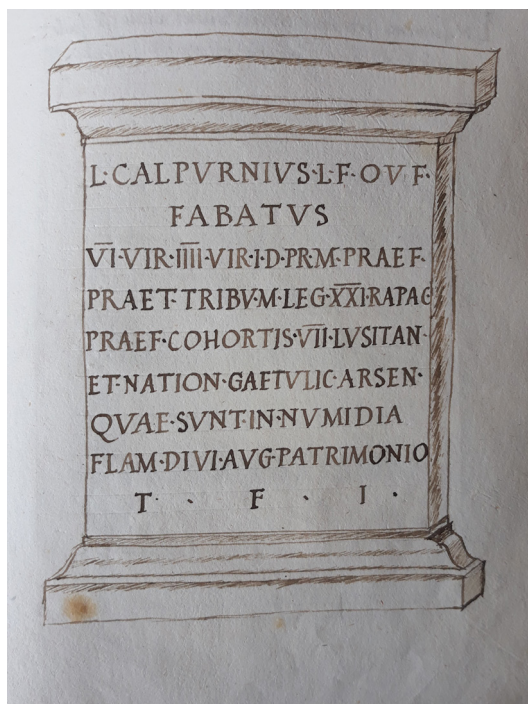 L·CALPVRNIVS·L·F·OVF·
FABATVS
V̅I̅·VIR·I̅I̅I̅I̅·VIR·I·D·PRM·PRAEF·
PRAET·TRIBV·M·LEG·X̅X̅I̅·RAPAC
PRAEF·COHORTIS·V̅I̅I̅·LVSITAN·
ET·NATION·GAETVLIC·ARSEN·
QVAE·SVNT·IN·NVMIDIA
FLAM·DIVI·AVG·PATRIMONIO
T · F · I ·